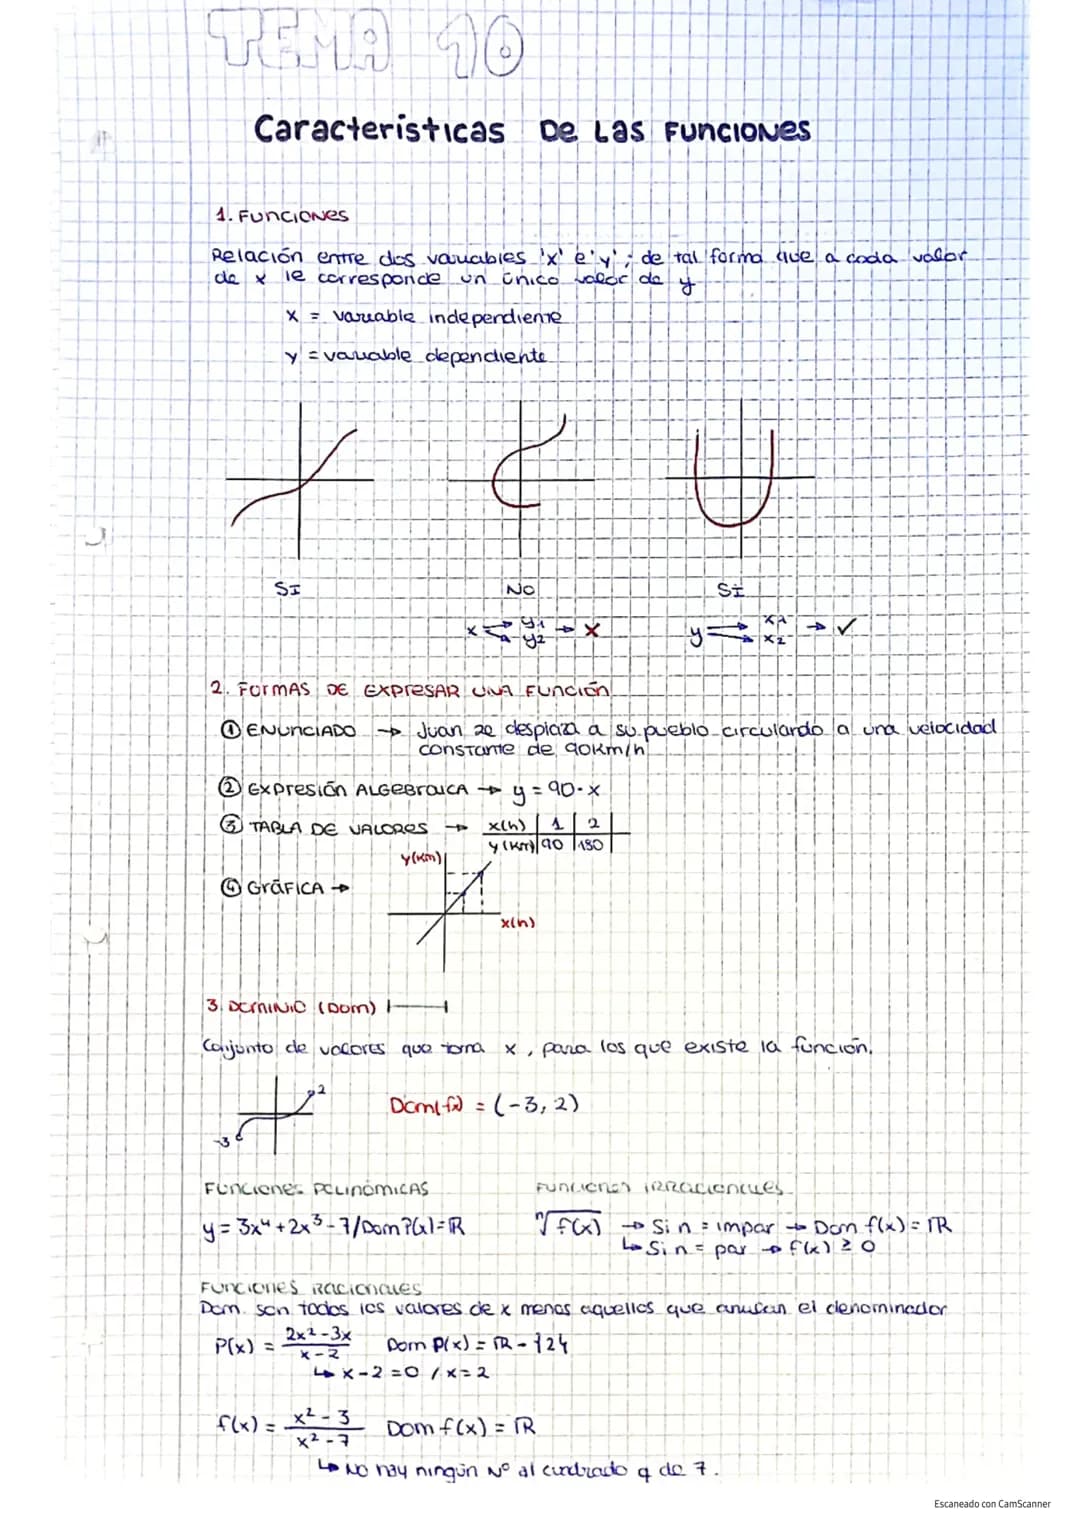 TEMA 10
Características De Las Funciones
1. Funciones
Relación entre dos variables 'x' e 'y'; de tal forma que a cada valor
de x le corresponde un único valor de y
x = variable independiente
y = variable dependiente
SI NO SI
x y1 y2 → X y x1 x2 → ✓
2. Formas de expresar una función
① Enunciado → Juan se desplaza a su pueblo circulando a una velocidad
constante de 90km/h
② Expresión algebraica → y = 90·x
③ Tabla de valores → x(h) | 1 | 2
y(km) | 90 | 180
y(km)
④ Gráfica →
x(h)
3. Dominio (Dom)
Conjunto de valores que toma x, para los que existe la función.
2
Dom(fx) = (-3, 2)
-3
Funciones polinómicas Funciones irracionales
y = 3x⁴ + 2x³ - 7 / Dom P(x) = ℝ ⁿ√f(x) → Si n = impar → Dom f(x) = ℝ
↳ Si n = par → f(x) ≥ 0
Funciones racionales
Dom. son todos los valores de x menos aquellos que anulan el denominador
P(x) = 2x² - 3x / x - 2 Dom P(x) = ℝ - {2}
↳ x - 2 = 0 / x = 2
f(x) = x² - 3 / x² - 7 Dom f(x) = ℝ
↳ No hay ningún Nº al cuadrado q de 7.
Escaneado con CamScanner